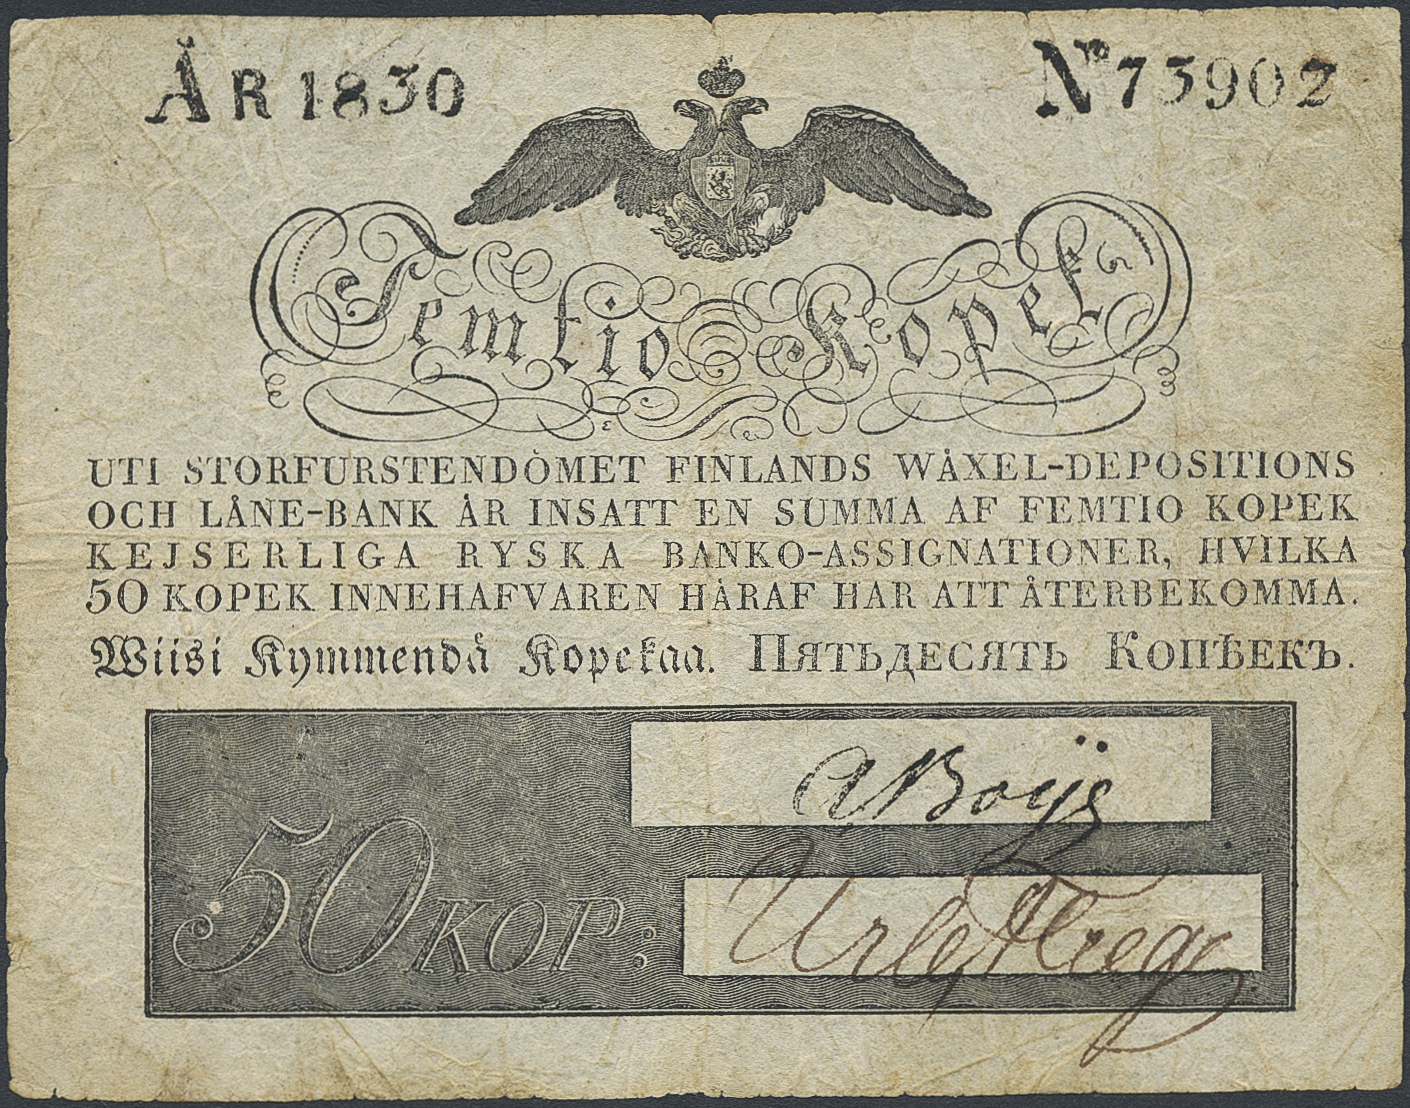 ÅR 1830
No 73902
Femtio Kopek
UTI STORFURSTENDÖMET FINLANDS WÄXEL-DEPOSITIONS
OCH LÅNE-BANK ÄR INSATT EN SUMMA AF FEMTIO KOPEK
KEJSERLIGA RYSKA BANKO-ASSIGNATIONER, HVILKA
50 KOPEK INNEHAFVAREN HÄRAF HAR ATT ÅTERBEKOMMA.
Wiisi Kymmendä Kopekaa. ПЯТЬДЕСЯТЬ КОПѢЕКЪ.
50 KOP: